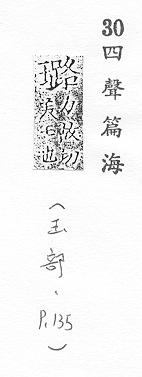 30
四聲篇海
璐
力故切
美玉也
(玉部、P.135)